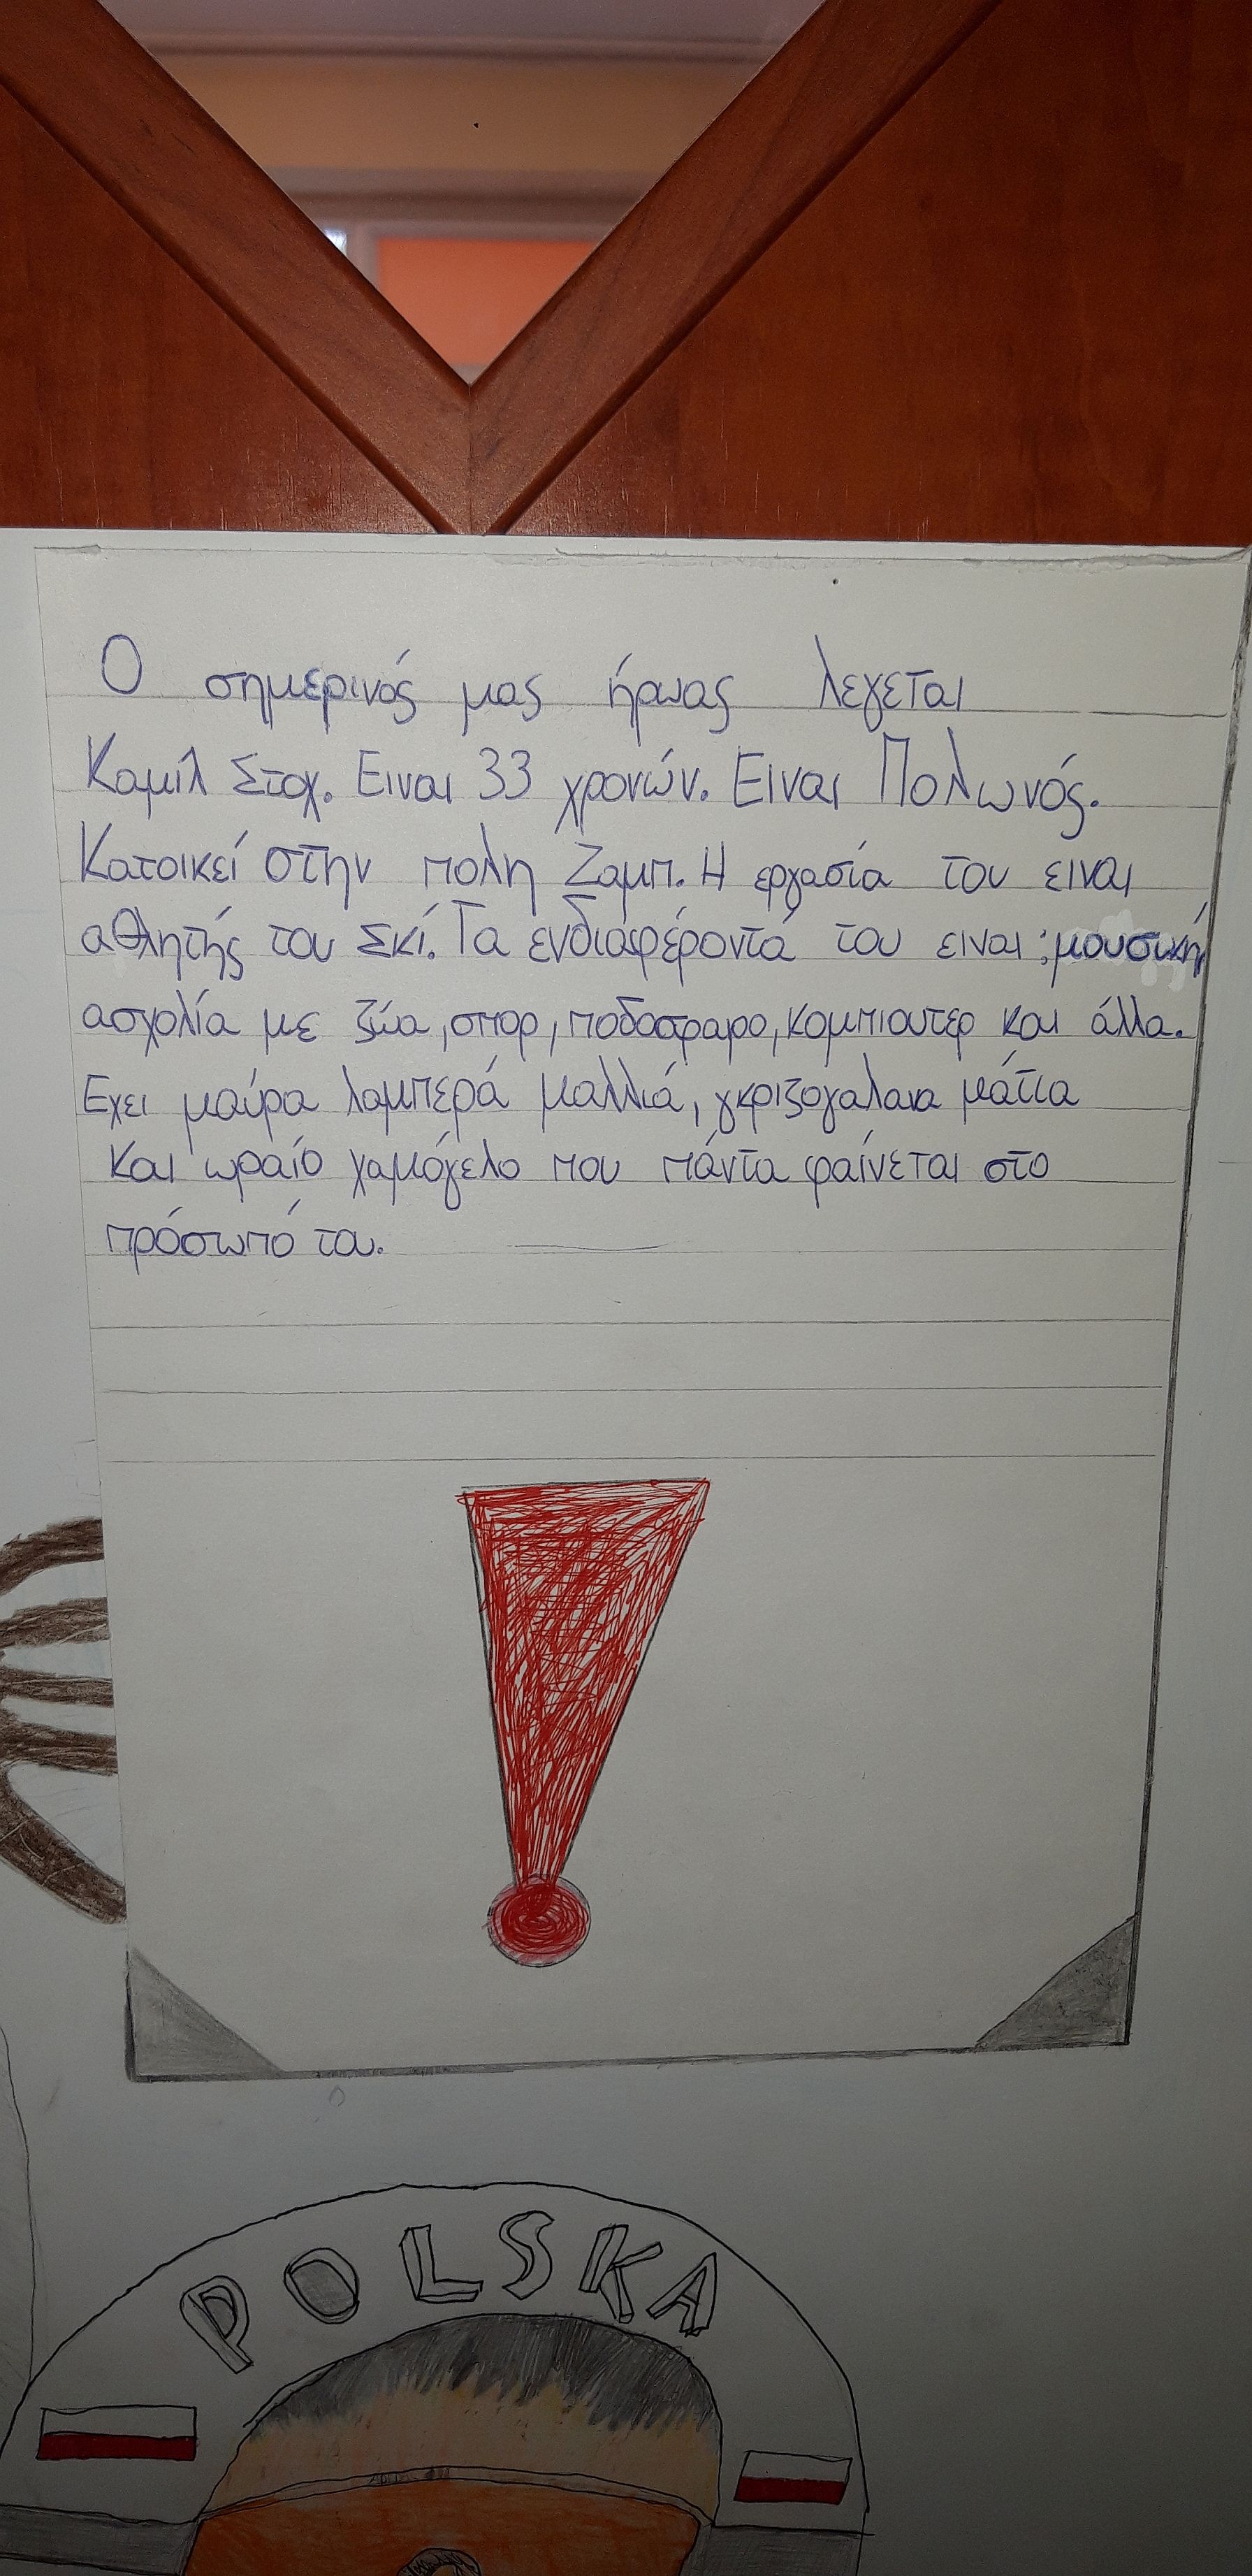 Ο σημερινός μας ήρωας λεγεται
Καμίλ Στοχ. Ειναι 33 χρονών. Ειναι Πολωνός.
Κατοικεί στην πολη Ζαμπ. Η εργασία του ειναι
αθλητής του Σκί. Τα ενδιαφέροντά του ειναι: μουσική,
ασχολία με ζώα, σπορ, ποδοσφαρο, κομπιουτερ και άλλα.
Εχει μαύρα λαμπερά μαλλιά, γκριζογαλανα μάτια
και ωραίο χαμόγελο που πάντα φαίνεται στο
πρόσωπό του.
POLSKA